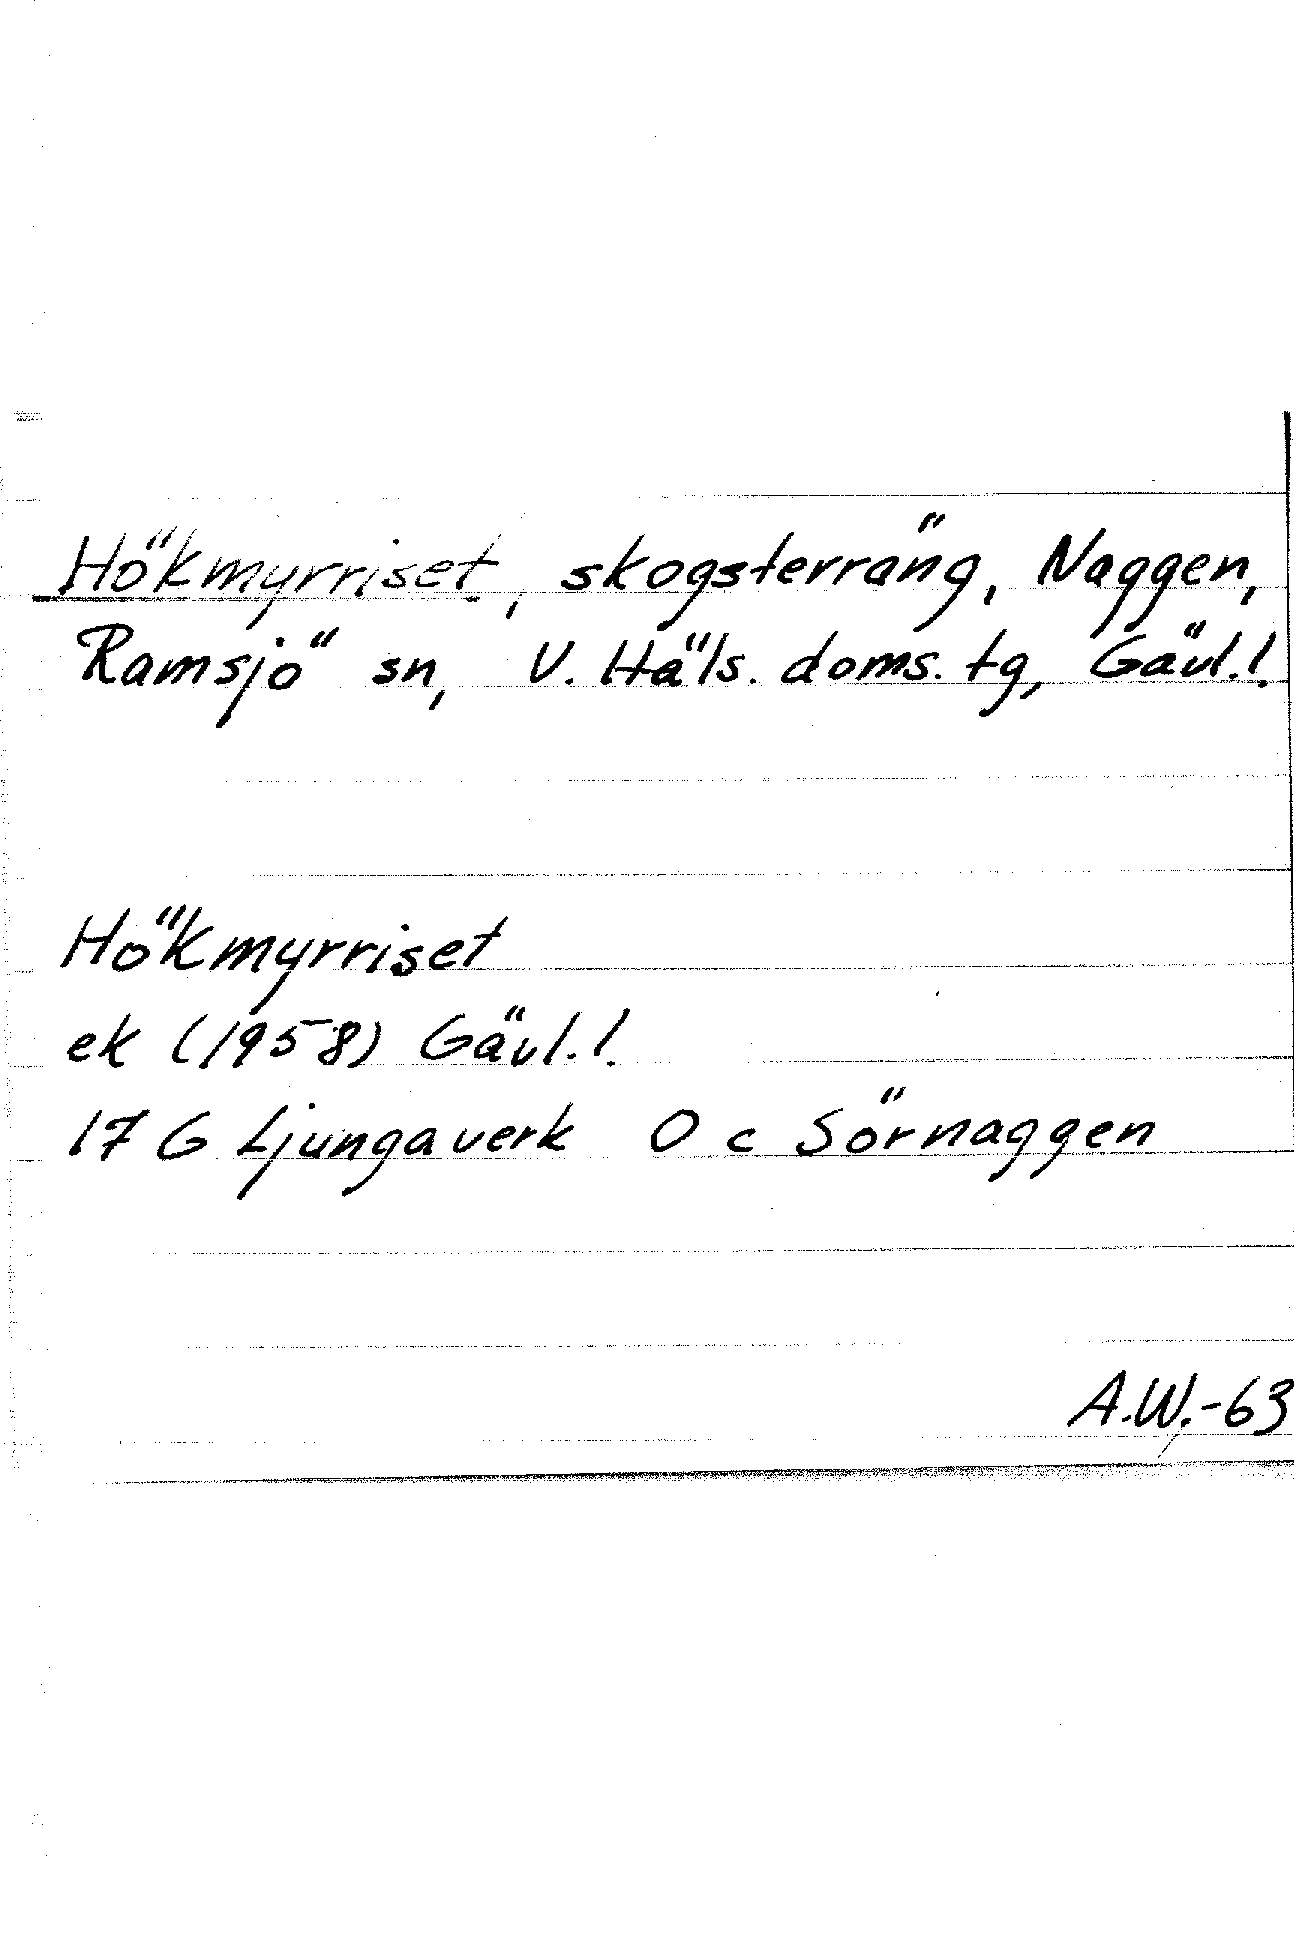 Hökmyrriset, skogsterräng, Naggen,
Ramsjö sn, V. Häls. doms. tg, Gävl.l.
Hökmyrriset
ek (1958) Gävl.l.
17 G Ljungaverk O c Sörnaggen
A.W.-63